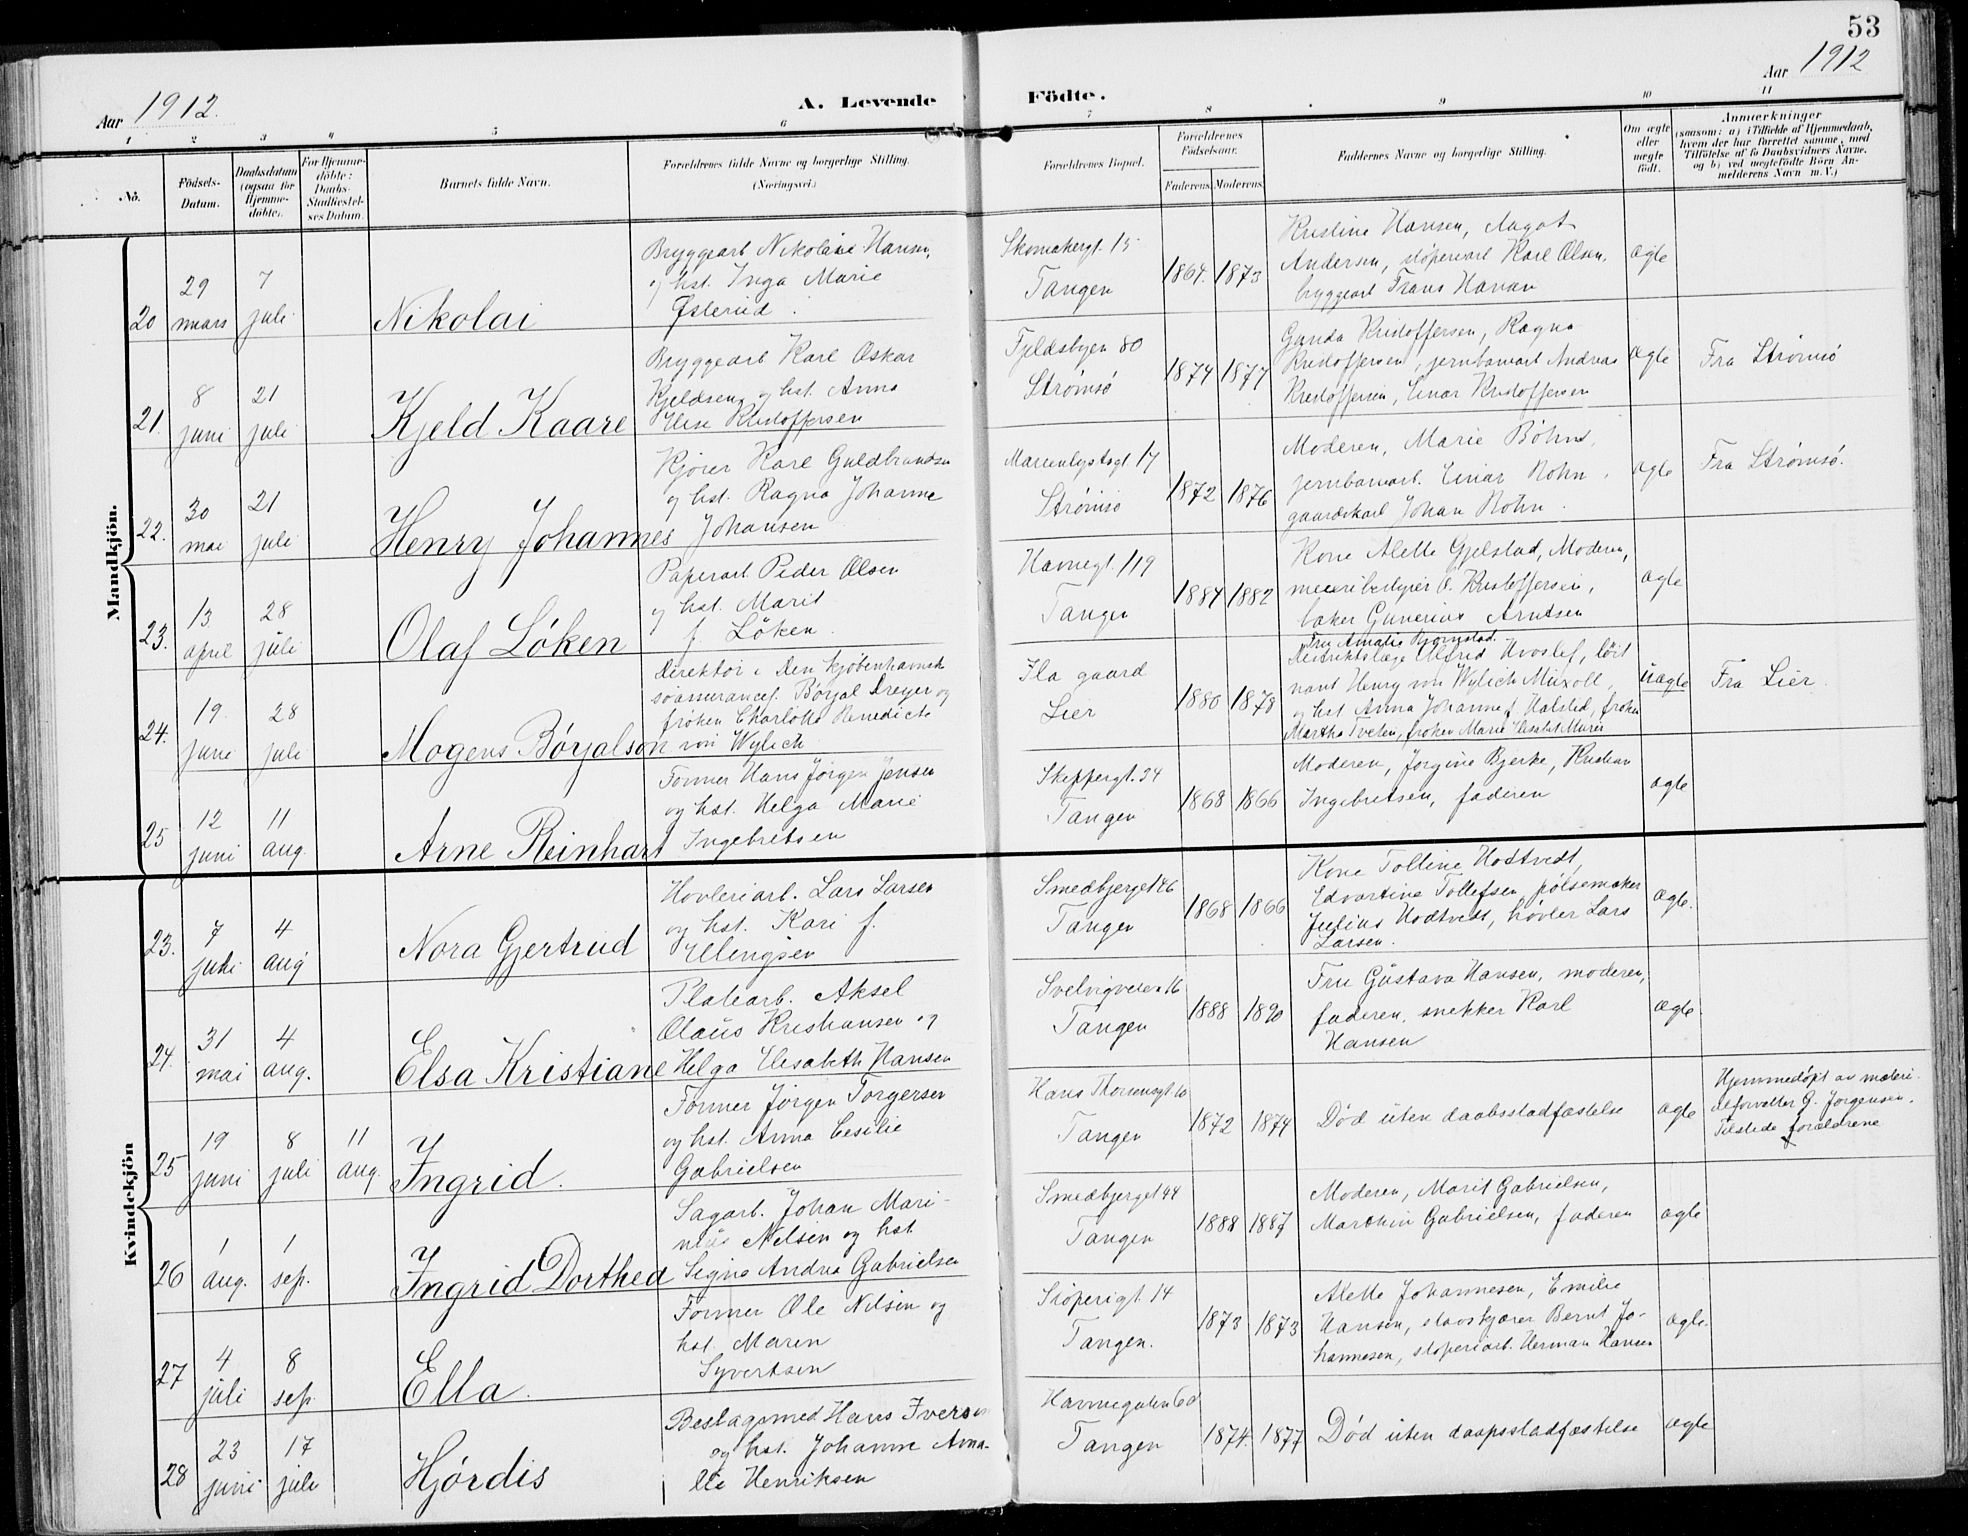 53
Aar 1912.
A. Levende Födte.
Aar 1912
1 2 3 4 5 6 7 8 9 10 11
Nö.
Födsels-
Datum.
Daabsdatum
(ogsaa for
Hjemme-
döbte).
For Hjemme-
döbte:
Daabs-
Stadfæstel-
ses Datum.
Barnets fulde Navn.
Forældrenes fulde Navne og borgerlige Stilling.
(Næringsvei.)
Forældrenes Bopæl.
Forældrenes
Födselsaar.
Faderens. Moderens.
Faddernes Navne og borgerlige Stilling.
Om ægte
eller
uægte
födt.
Anmærkninger
(saasom: a) i Tilfælde af Hjemmedaab,
hvem der har forrettet samme, med
Tilföielse af to Daabsvidners Navne,
og b) ved uægtefödte Börn An-
melderens Navn m. V.)
Mandkjön.
20
29
mars
7
juli
Nikolai
Bryggearb Nikolai Hansen,
og hst. Inga Marie
Østerud.
Skomakergt. 15
Tangen
1864. 1873
Kristine Hansen, Aagot
Andersen, støperiarb Karl Olsen,
bryggearb Frans Hansen
ægte
21.
8
juni
21
juli
Kjeld Kaare
Bryggearb Karl Oskar
Kjeldsen og hst. Anna
Elise Kristoffersen
Fjeldsbyen 80
Strømsö
1874 1877
Gunda Kristoffersen, Ragna
Kristoffersen, jernbanearb Andreas
Kristoffersen, Einar Kristoffersen
ægte
Fra Strömsö
22.
30
mai
21
juli
Henry Johannes
Kjører Karl Guldbrandsen
og hst. Ragna Johanne
Johansen
Marienlystsgt 17
Strömsö
1872 1876
Moderen, Marie Böhn,
jernbanearb. Einar Rohn,
gaardskarl Johan Rohn.
ægte
Fra Strömsö.
23.
13
april
28
juli
Olaf Löken
Papirarb. Peder Olsen
og hst. Marit
f. Löken.
Havnegt. 119
Tangen
1884 1882
Kone Alette Gjelstad, Moderen,
meieribestyrer O. Kristoffersen,
baker Gunerius Arntsen
ægte
24.
19.
juni
28
juli
Mogens Börjalson
Direktör i Den kjöbenhavnske
söassurancef. Börjal Dreyer og
fröken Charlotte Benedicte
von Wylich
Ila gaard
Lier
1880 1878
Fru Amalie Bjørnstad.
Distriktslæge Alfred Hvoslef, löit
nant Henry von Wylich Müxoll,
og hst Anna Johanne f. Halsted, fröken
Martha Tveten, fröken Marie Elisabet Murer
uægte
Fra Lier.
25
12
juni
11
aug.
Arne Reinhart
Former Hans Jörgen Jensen
og hst. Helga Marie
Ingebretsen
Skeppergt. 24
Tangen
1868 1866
Moderen, Jörgine Bjerke, Kristian
Ingebretsen, faderen
ægte
Kvindekjön
23.
7
juli
4
aug
Nora Gjertrud
Hovleriarb. Lars Larsen
og hst. Kari f.
Ellingsen
Smedbjerget 46
Tangen
1868 1866
Kone Tolline Hodtvedt,
Edvartine Tollefsen, pölsemaker
Julius Hodtvedt, hövler Lars
Larsen.
ægte.
24.
31
mai
4
aug.
Elsa Kristiane
Platearb. Aksel
Olaüs Kristiansen og
Helga Elisabeth Hansen
Svelvigveien 16
Tangen
1888 1890
Fru Güstava Hansen, moderen,
faderen, snekker Karl
Hansen
ægte
25
19
juni
8
juli
11
aug.
Ingrid.
Former Jörgen Torgersen
og hst. Anna Cesilie
Gabrielsen
Hans Thorensgt 10
Tangen
1872 1874
Död uten daabsstadfæstelse
ægte
Hjemmedöpt av materi-
alforvalter G. Jorgensen.
Tilstede forældrene
26
1
aug.
1
sep.
Ingrid Dorthea
Sagarb. Johan Mari-
nius Nilsen og hst.
Signe Andrea Gabrielsen
Smedbjerget 44
Tangen
1888 1887
Moderen, Marit Gabrielsen,
Marthin Gabrielsen, faderen
ægte
27
4
juli
8
sep.
Ella.
Former Ole Nilsen og
hst. Maren
Syvertsen
Stöperigt. 14
Tangen.
1873 1873
Alette Johannesen, Emilie
Hansen, stavskjærer Bernt Jo-
hannesen, stoperiarb. Herman Hansen
ægte.
28
23
juni
17
juli
Hjördis
Beslagsmed Hans Iversen
og hst. Johanne Ama-
lie Henriksen
Havnegaten 60
Tangen
1874. 1877
Död uten daapsstadfæstelse
ægte